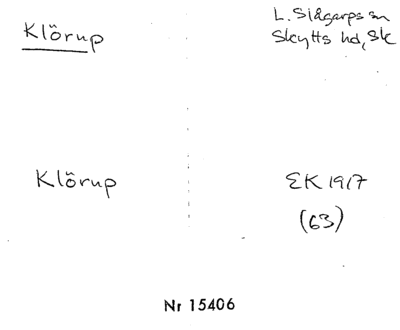 Klörup
L. Slågarps sn
Skytts hd, Sk
Klörup
EK 1917
(63)
Nr 15406